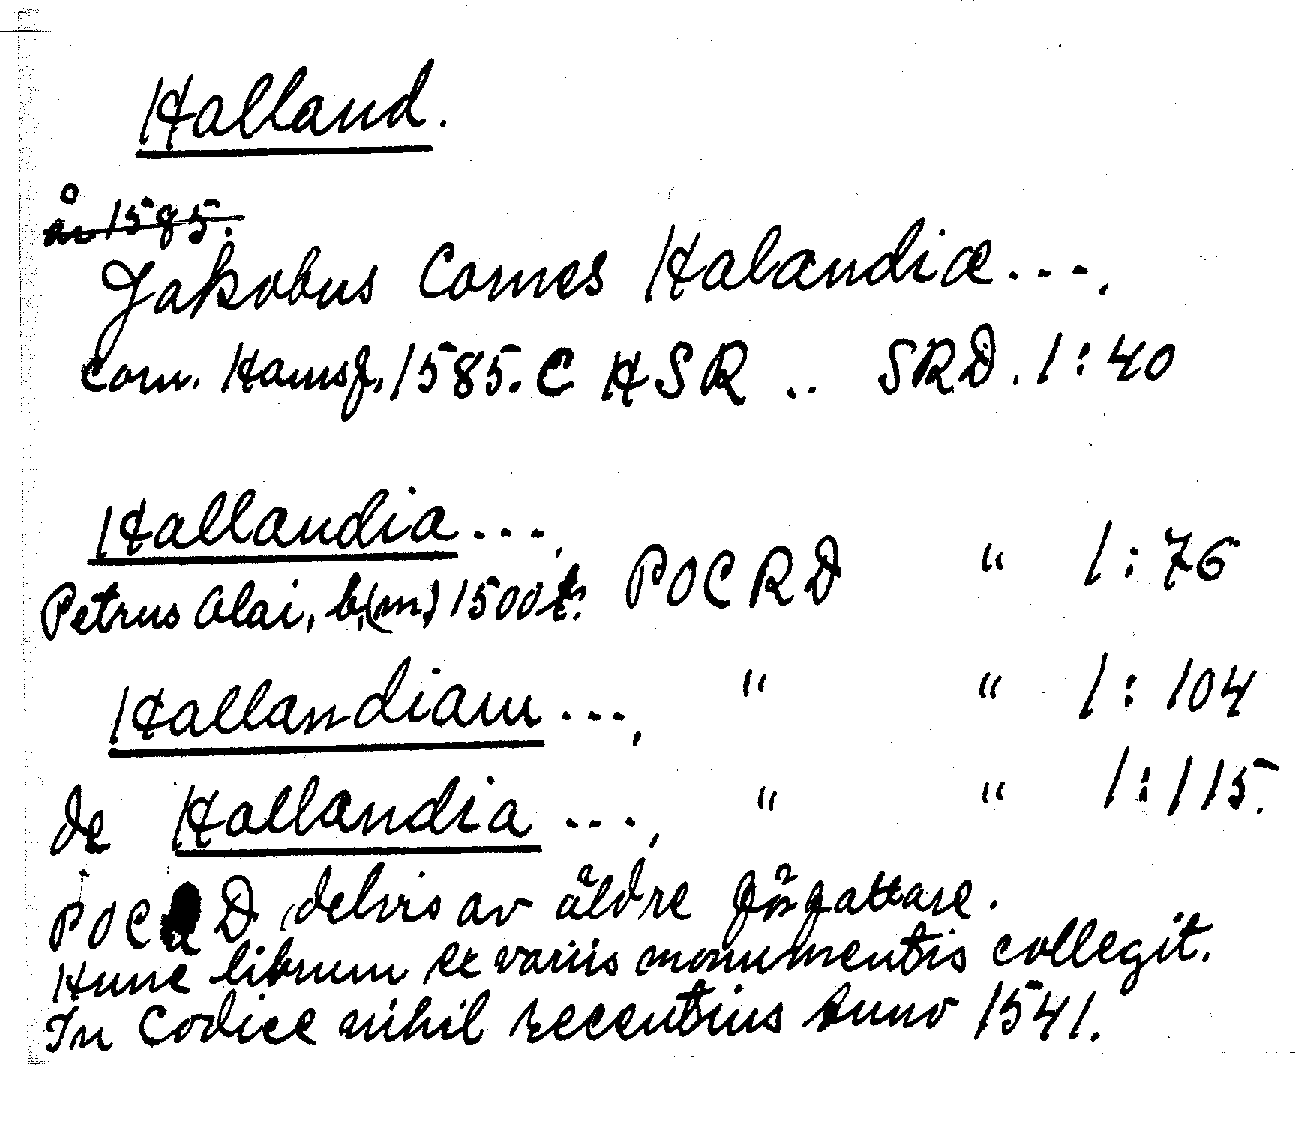 Halland.
år 1585.
Jakobus Comes Halandiæ...,
Corn. Hamsf. 1585. C HSR .. SRD. 1:40
Hallandia...,
Petrus Olai, b.(m.) 1500t. POCRD " 1:76
Hallandiam..., " " 1:104
de Hallandia..., " " 1:115.
POCRD delvis av äldre författare.
Hunc librum ex variis monumentis collegit.
In Codice nihil recentius Anno 1541.